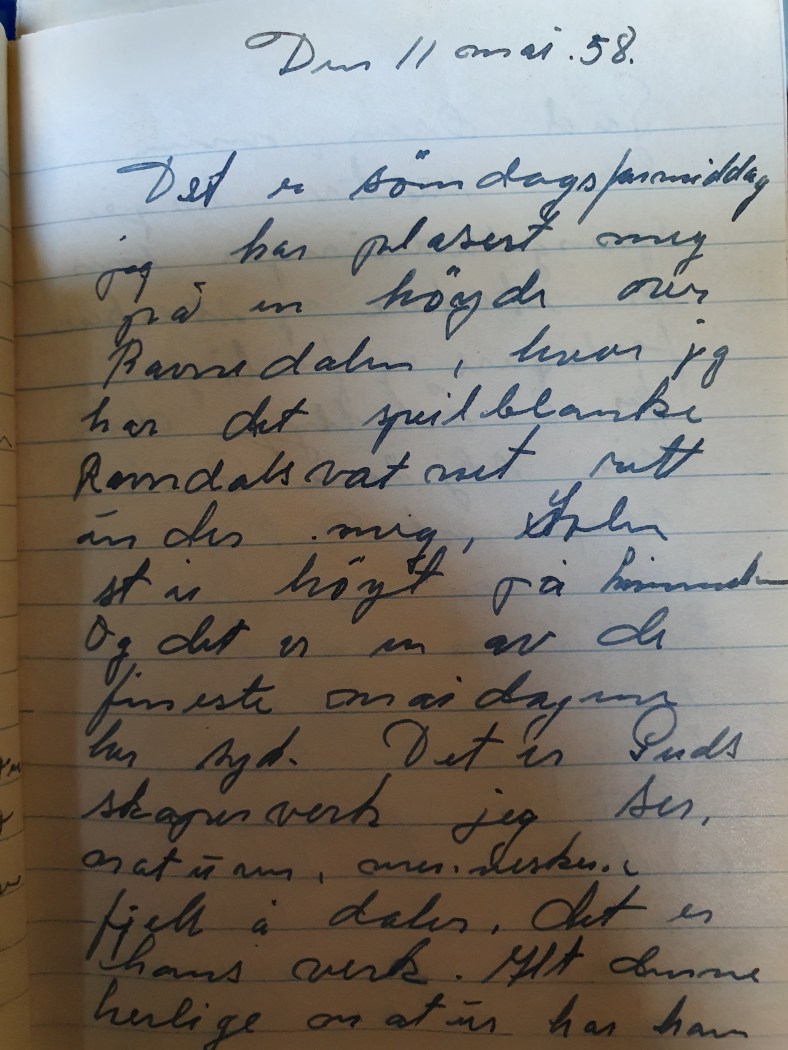 Den 11 mai. 58.
Det er söndagsformiddag
jeg har plasert meg
på en höyde over
Ravnedalen, hvor jeg
har det speilblanke
Ravndalsvatnet rett
under meg, Solen
står höyt på himmelen
Og det er en av de
fineste maidagene
her syd. Det er Guds
skaperverk jeg ser,
naturen, menneskene
fjell å daler, det er
hans verk. Alt denne
herlige natur har han